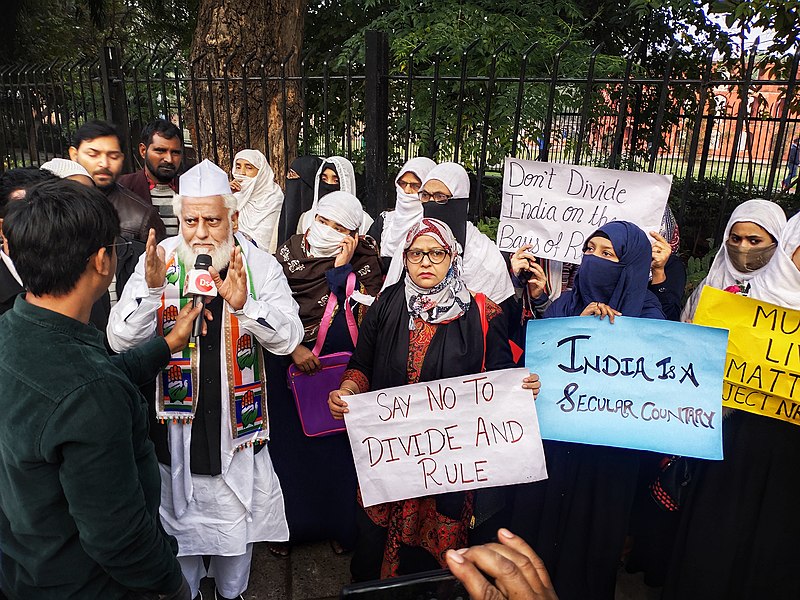 Don't Divide
India on the
Bays of R
SAY NO TO
DIVIDE AND
RULE
INDIA IS A
SECULAR COUNTARY
MU
LIV
MATT
JECT NR